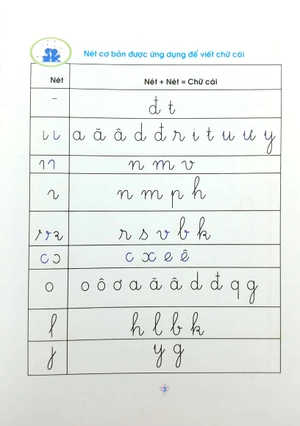 Nét cơ bản được ứng dụng để viết chữ cái
Nét Nét + Nét = Chữ cái
đ t
a ă â d đ r i t u ư y
n m v
n m p h
r s v b k
c x e ê
o ô ơ a ă â d đ q g
h l b k
y g
3